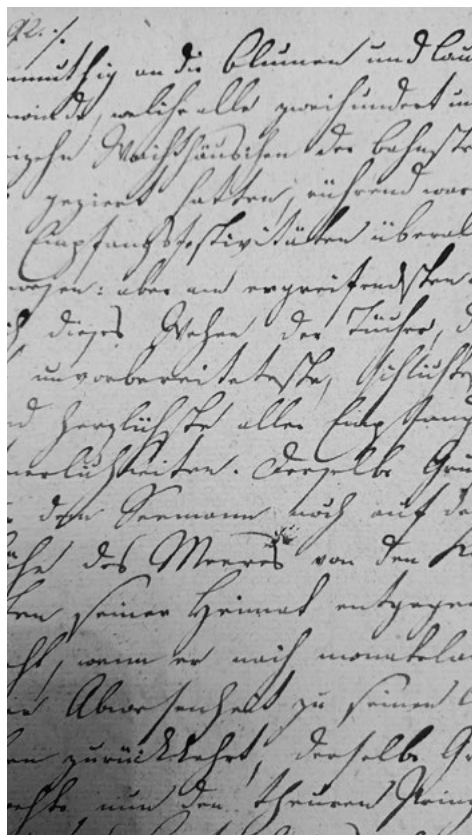 müthig an die Blumen und Lau
winde, welche alle zweihundert un
zehn Wachthäuschen der Bahnstre
geziert hatten, rührend war
Empfangsfestivitäten überal
wesen: aber am ergreifendsten
dieses Wehen der Tücher, d
unvorbereiteteste, schlichtes
herzlichste aller Empfang
erlichkeiten. Derselbe Gru
dem Seemann noch auf de
he des Meeres von den K
ten seiner Heimat entgege
ht, wenn er nach monatela
Abwesenheit zu seinen
en zurückkehrt, derselbe Gr
ehte nun den theuren Prin